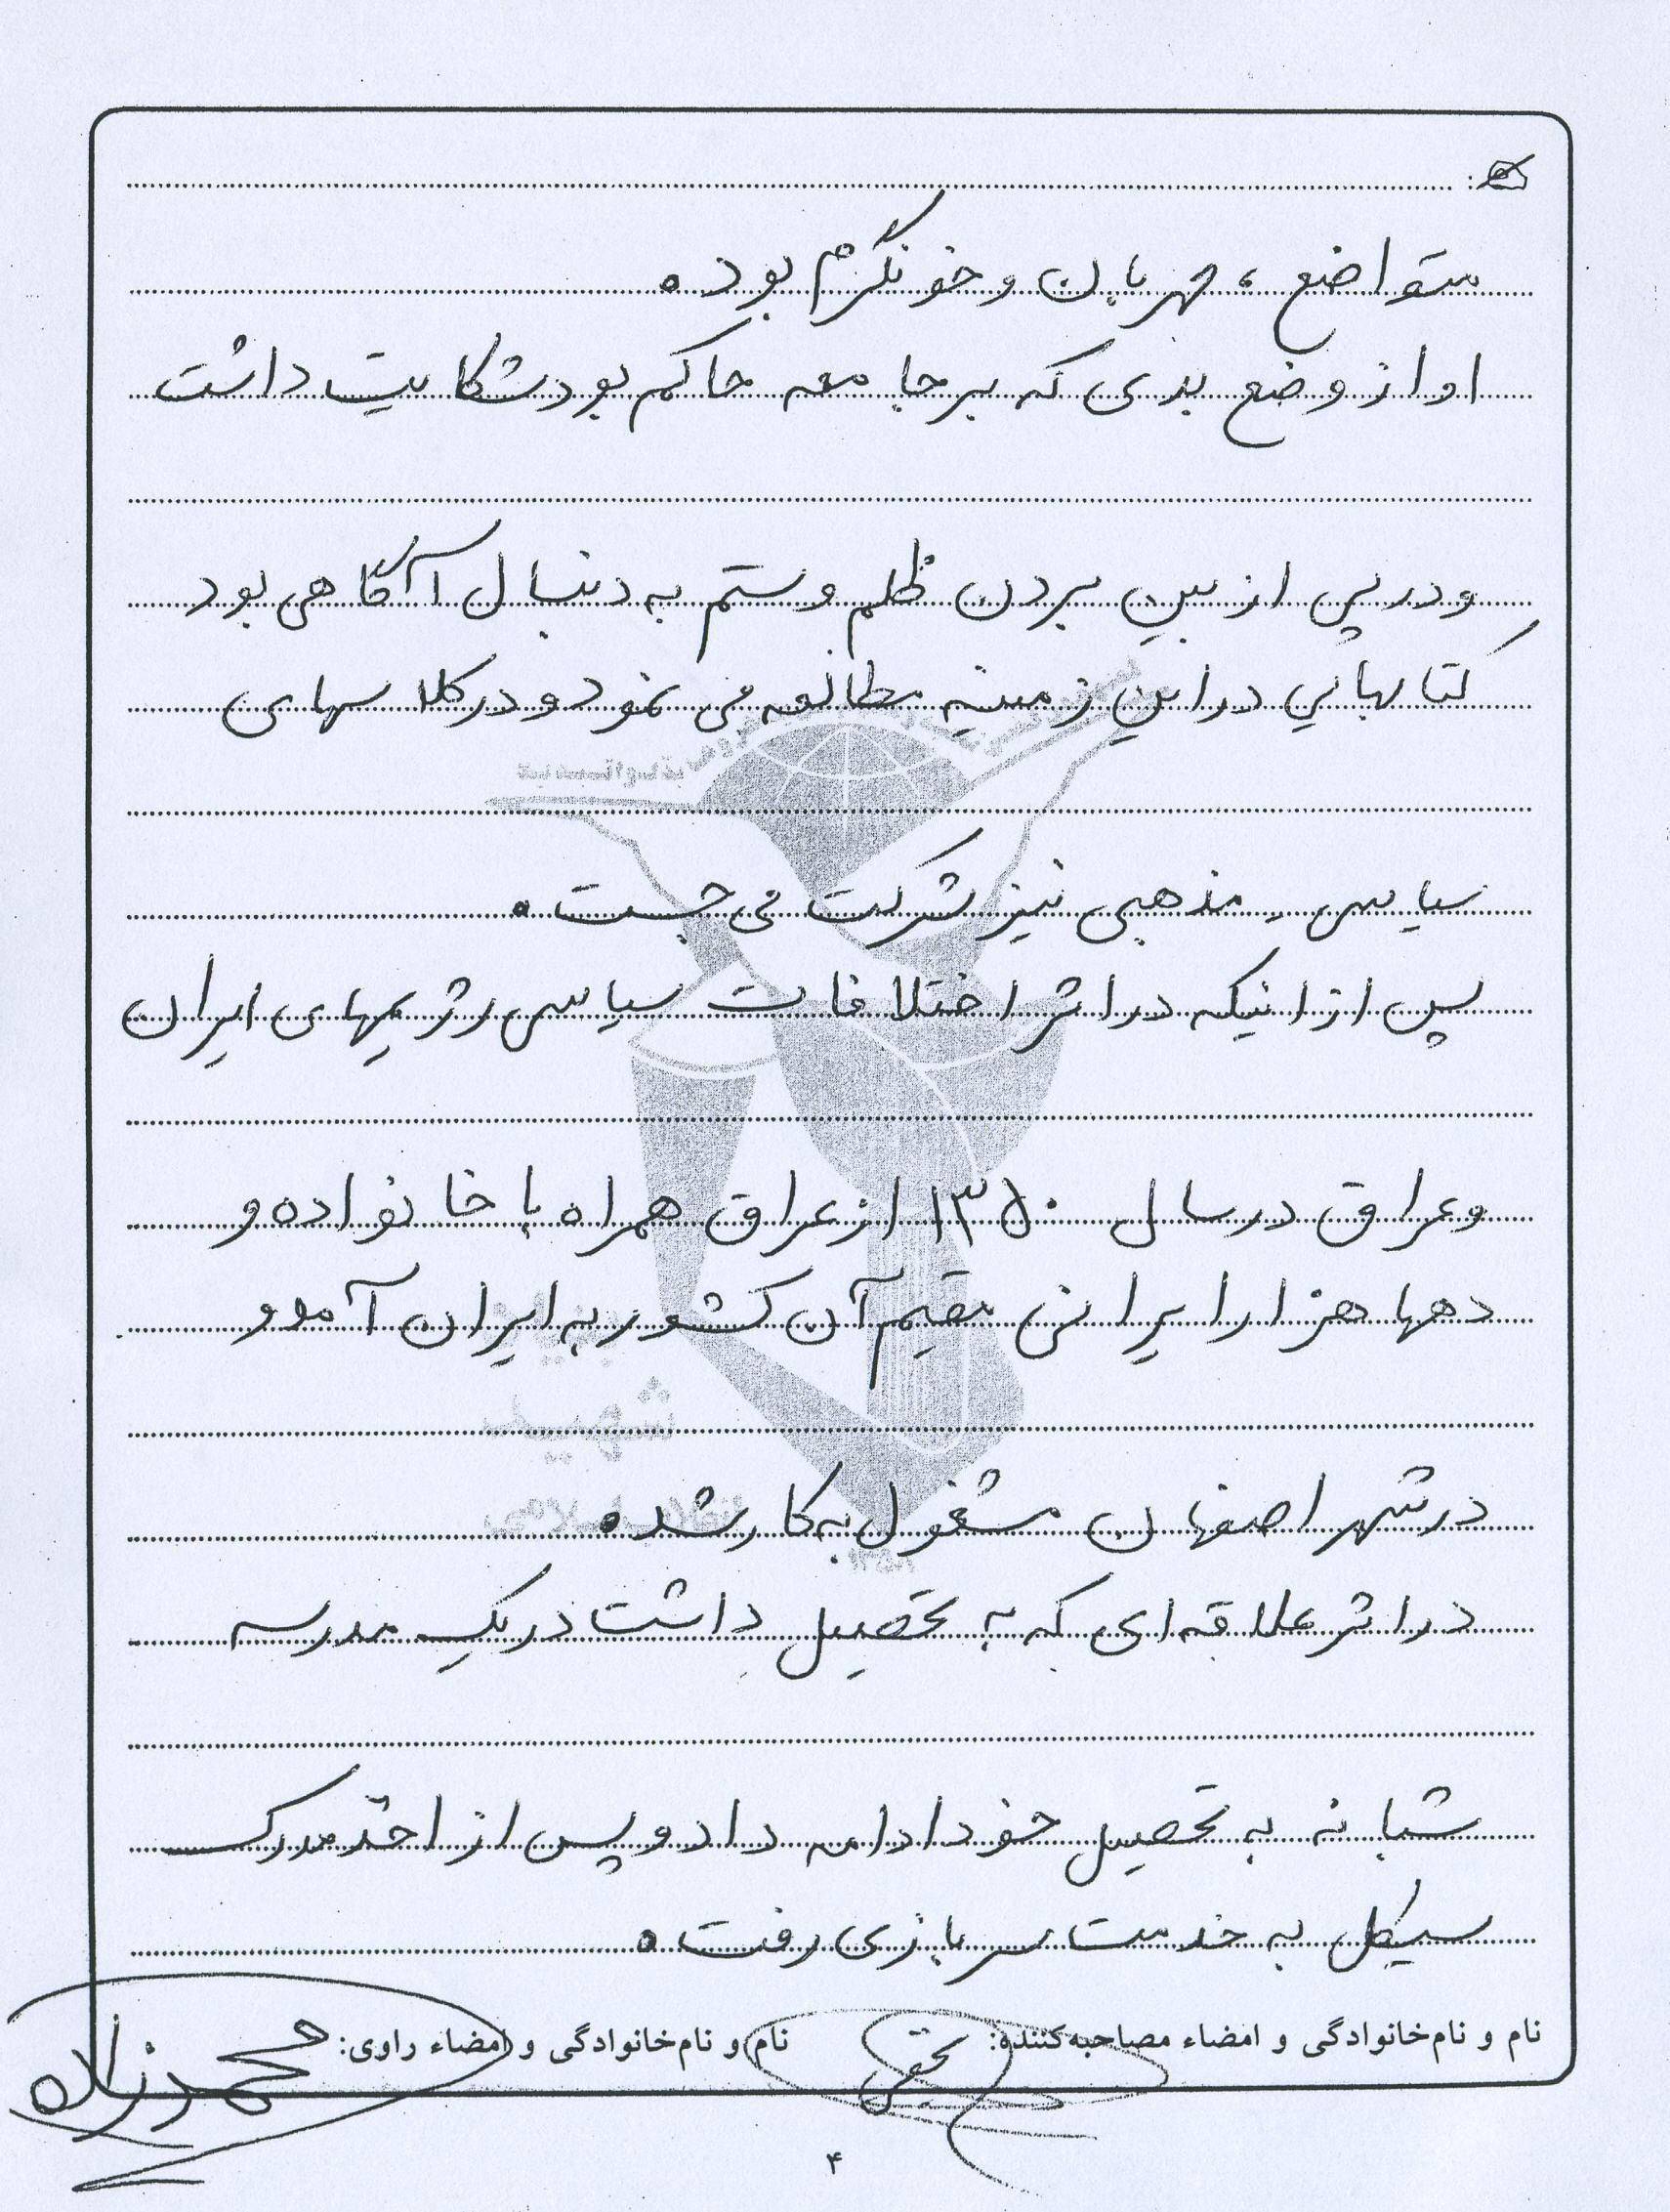 متواضع، مهربان و خونگرم بود.
او از وضع بدی که بر جامعه حاکم بود شکایت داشت
و در پی از بین بردن ظلم و ستم به دنبال آگاهی بود
کتابهایی در این زمینه مطالعه می نمود و در کلاسهای
سیاسی - مذهبی نیز شرکت می جست.
پس از اینکه در اثر اختلافات سیاسی رژیمهای ایران
و عراق در سال ۱۳۵۰ از عراق همراه با خانواده و
دهها هزار ایرانی مقیم آن کشور به ایران آمد و
در شهر اصفهان مشغول به کار شد.
در اثر علاقه ای که به تحصیل داشت در یک مدرسه
شبانه به تحصیل خود ادامه داد و پس از اخذ مدرک
سیکل به خدمت سربازی رفت.
نام و نام‌خانوادگی و امضاء مصاحبه‌کننده: نام و نام‌خانوادگی و امضاء راوی: محمدزاده
۴